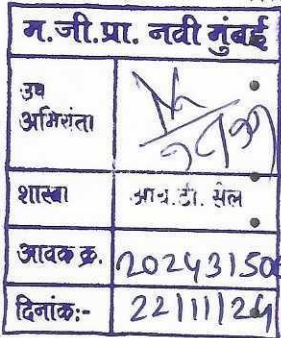 म.जी.प्रा. नवी मुंबई
उप
अभियंता
शाखा आय.टी. सेल
आवक क्र. 202431506
दिनांक:- 22/11/24